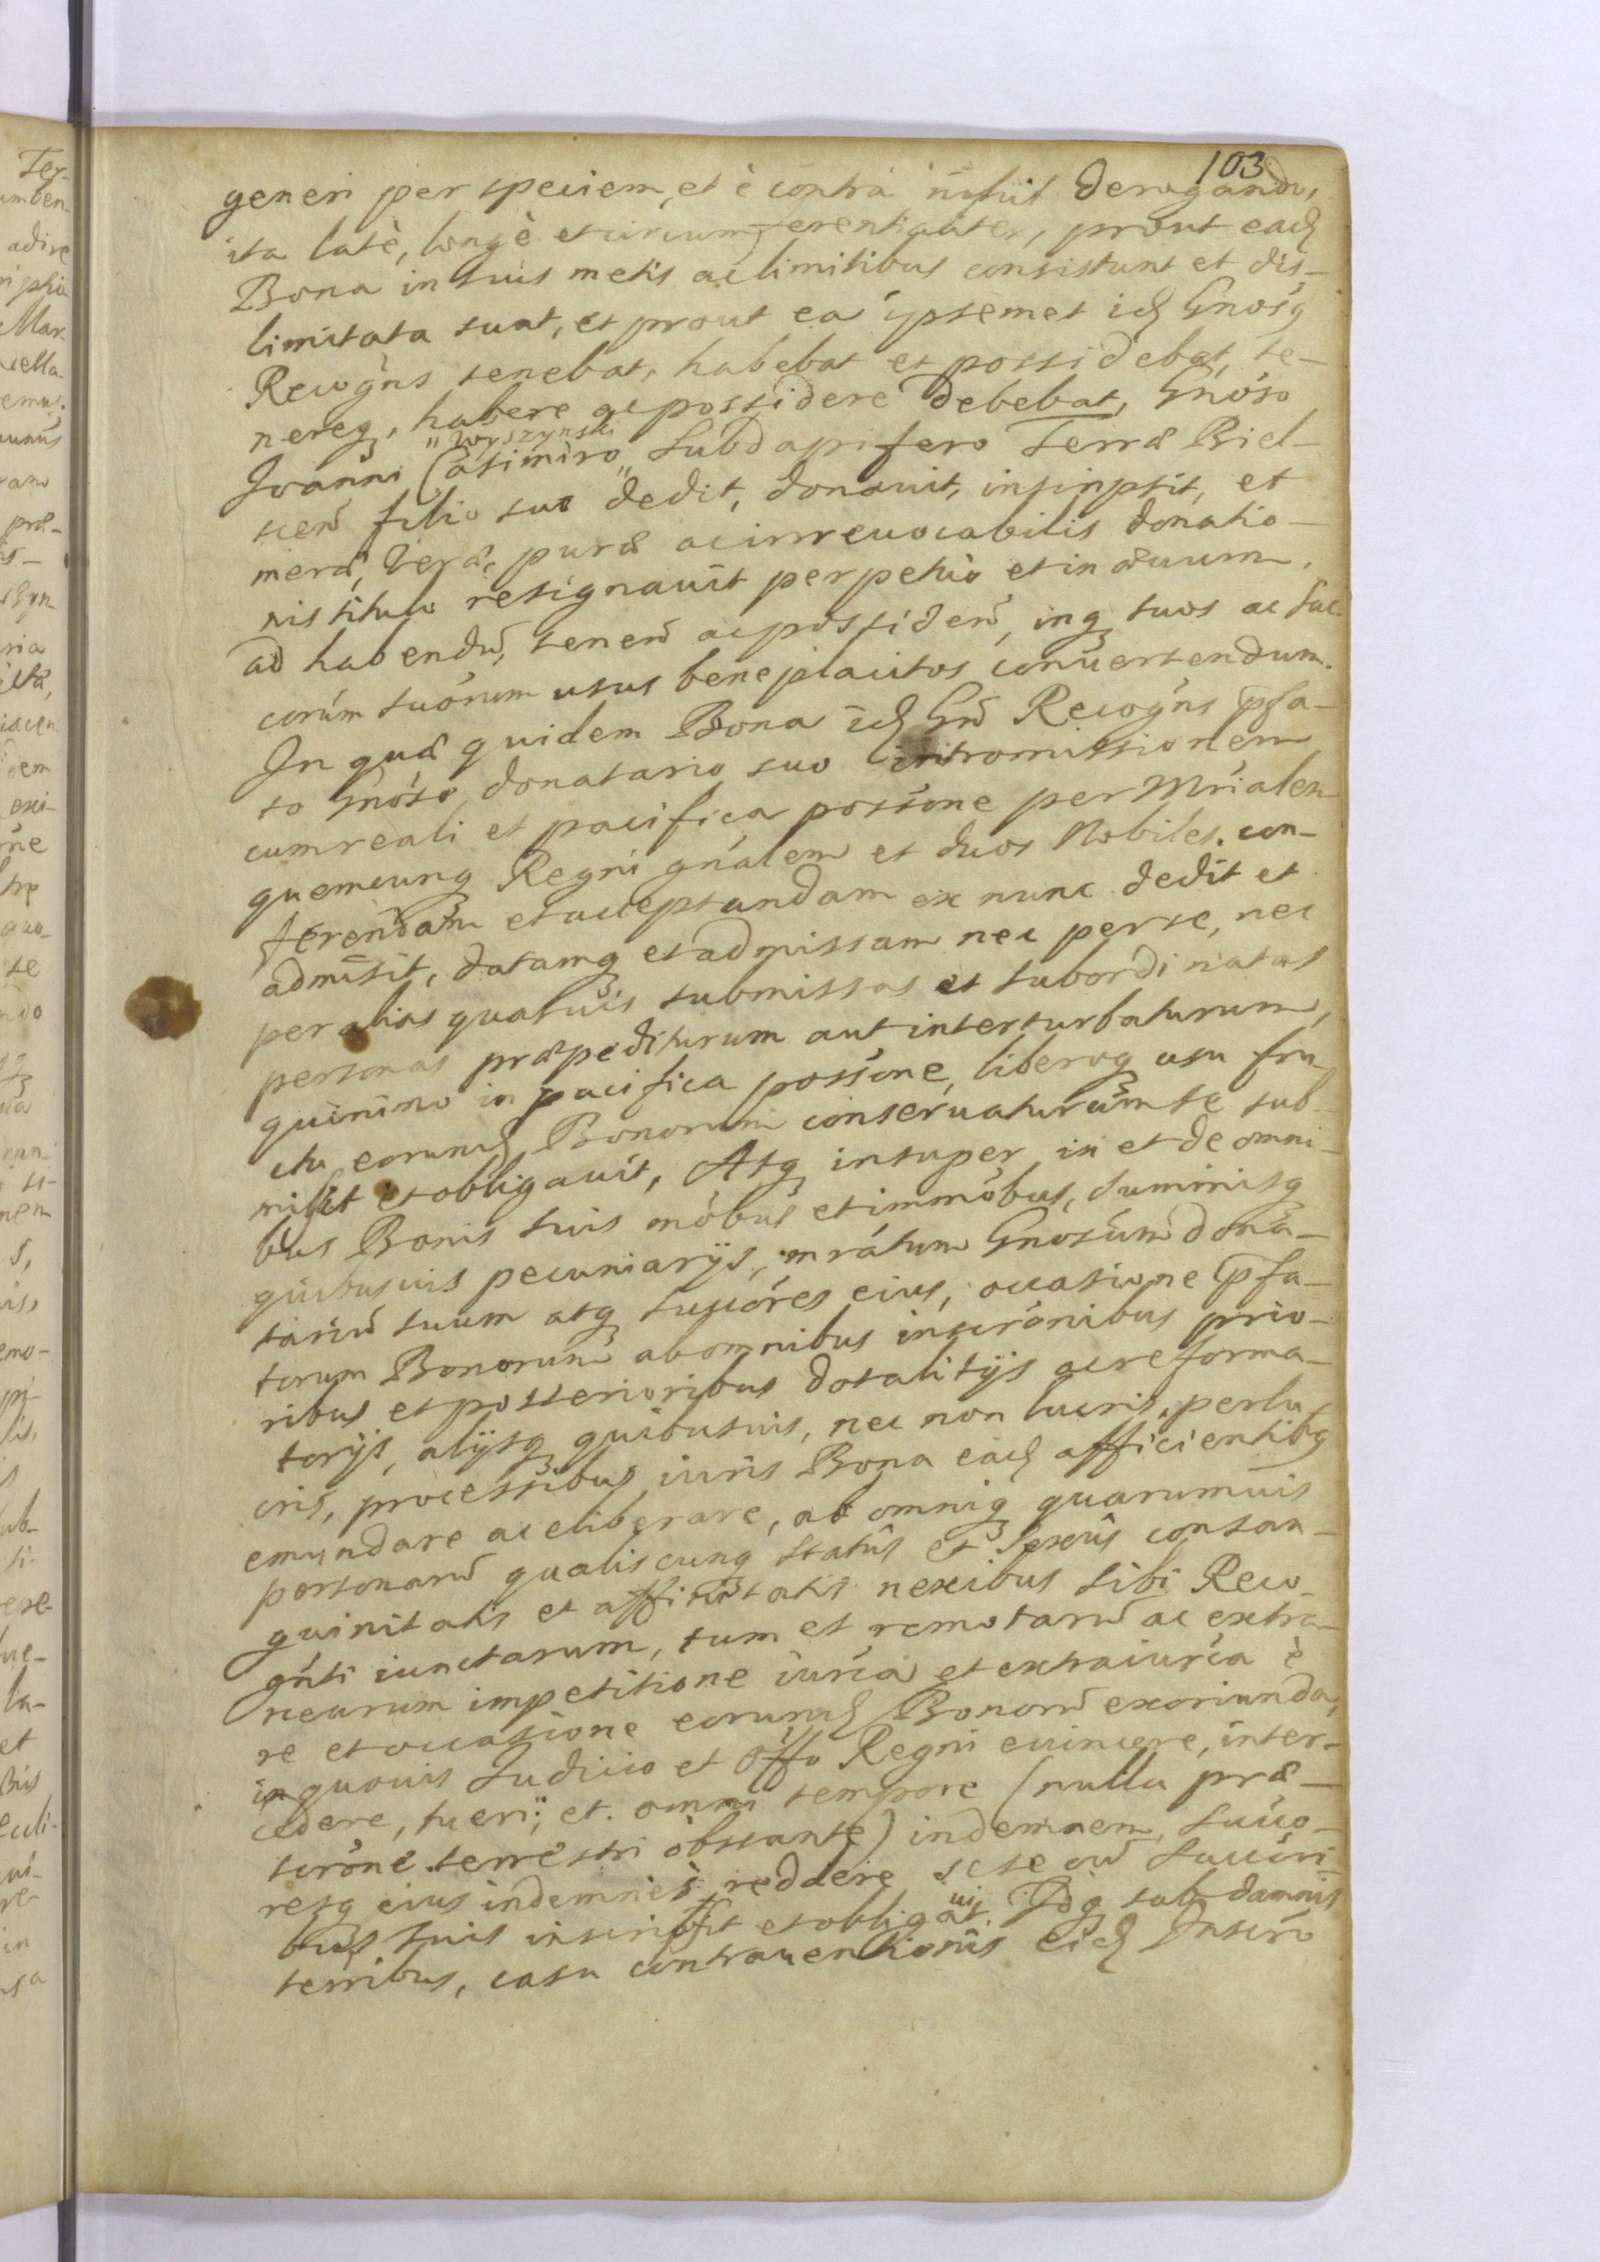 103
generi per speciem, et è contrà nihil derogando,
ita latè, longè et circumferentialiter, prout eadẽ
Bona in suis metis ac limitibus consistunt et dis-
limitata sunt, et prout ea ipsemet idẽ Gnosq
Recogns tenebat, habebat et possidebat, te-
nereq, habere ac possidere debebat, Gnoso
"Wyszynski
Joanni Casimiro " Subdapifero Terræ Biel-
scen filio suo dedit, donauit, inscripsit, et
meræ, veræ, puræ ac irreuocabilis donatio-
nis titulo resignauit perpetuò et in æuum,
ad habendũ, tenen ac possiden, inq suos ac suc
corum suorum usus beneplacitos conuertendum.
In quæ quidem Bona idẽ Gn Recogns pfa-
to Gnoso donatario suo intromissionem
cum reali et pacifica possone per Mrialem
quemcunq Regni gnalem et duos Nobiles con-
ferendam et acceptandam ex nunc dedit et
admisit, datamq et admissam nec per se, nec
per alias quasuis submissas et subordinatas
personas præpediturum aut interturbaturum,
quinimo in pacifica possone, liberoq usu fru
ctu eorundẽ Bonorum conseruaturum se sub-
misit et obligauit, Atq insuper in et de omni-
bus Bonis suis mobus et immobus, summisq
quibusuis pecuniarijs, inratum Gnosum dona-
tariũ suum atq succores eius, occasione pfa-
torum Bonorum ab omnibus inscronibus prio-
ribus et posterioribus dotalitijs ac reforma-
torijs, alijsq quibusuis, nec non lucris, perlu
cris, processibus iuris Bona eadẽ afficientibq
emundare ac eliberare, ab omniq quarumuis
personarũ qualiscunq statûs et sexûs consan-
guinitatis et affinitatis nexibus sibi Reco-
gnti iunctarum, tum et remotarũ ac extra-
nearum impetitione iuria et extraiuria è
re et occasione eorundẽ Bonorũ exoriunda,
in quouis Judicio et Offo Regni euincere, inter-
cedere, tueri, et omni tempore (nulla præ-
scrone terrestri obstante) indemnem, succo-
resq eius indemnes reddere sese cũ succori
bus suis inscripsit et obligauit. Idq sub damnis
terribus, casu contrauentionis eidẽ Inscro